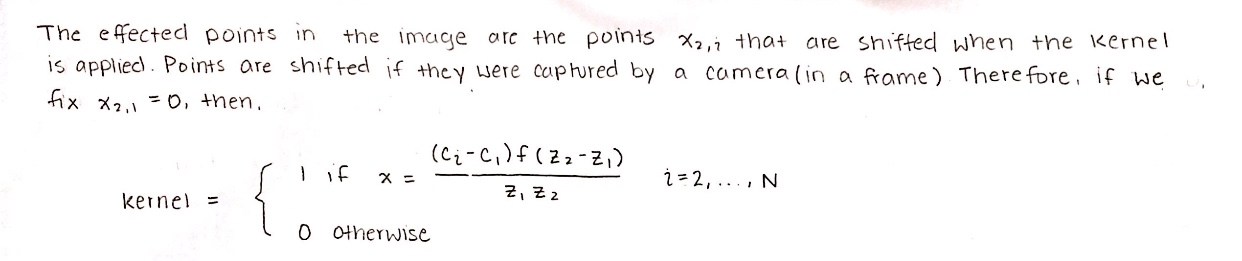 The effected points in the image are the points x₂,ᵢ that are shifted when the kernel
is applied. Points are shifted if they were captured by a camera (in a frame) Therefore, if we
fix x₂,₁ = 0, then,
kernel = { 1 if x = (cᵢ-c₁)f(z₂-z₁) / z₁z₂ i=2,...,N
0 otherwise